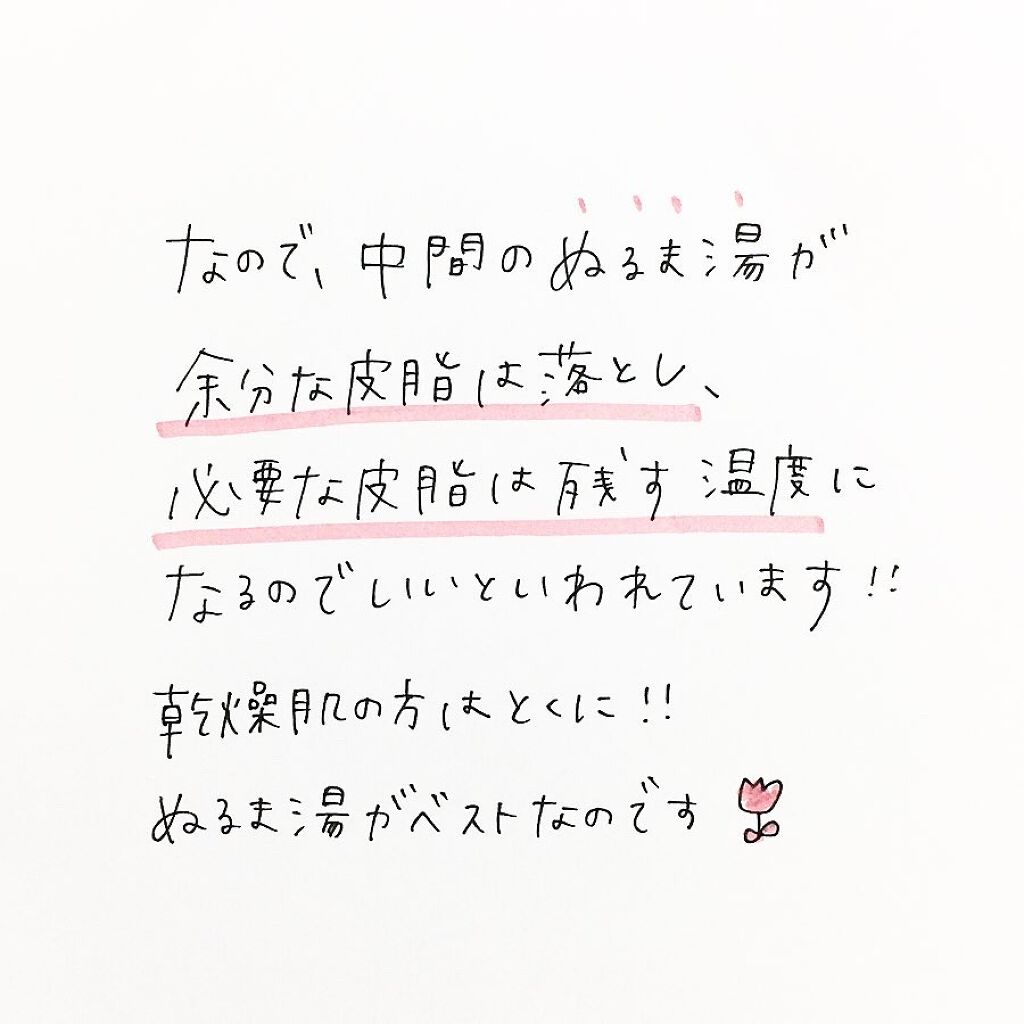 なので、中間のぬるま湯が
余分な皮脂は落とし、
必要な皮脂は残す温度に
なるのでいいといわれています!!
乾燥肌の方はとくに!!
ぬるま湯がベストなのです